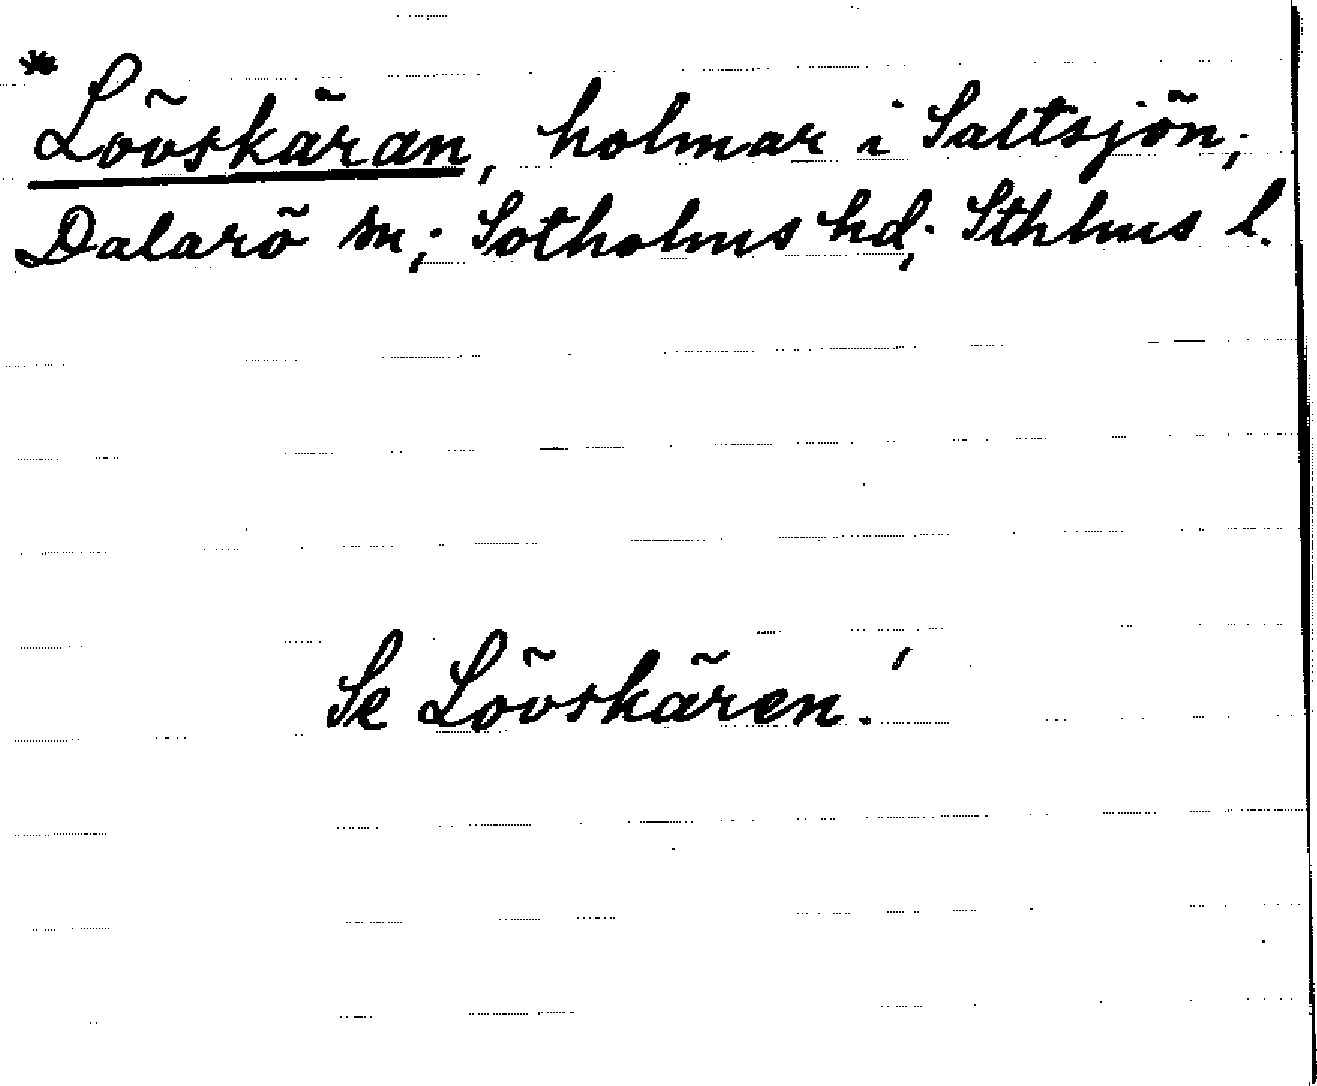 * Lövskäran, holmar i Saltsjön;
Dalarö sn; Sotholms hd; Sthlms l.
Se Lövskären.